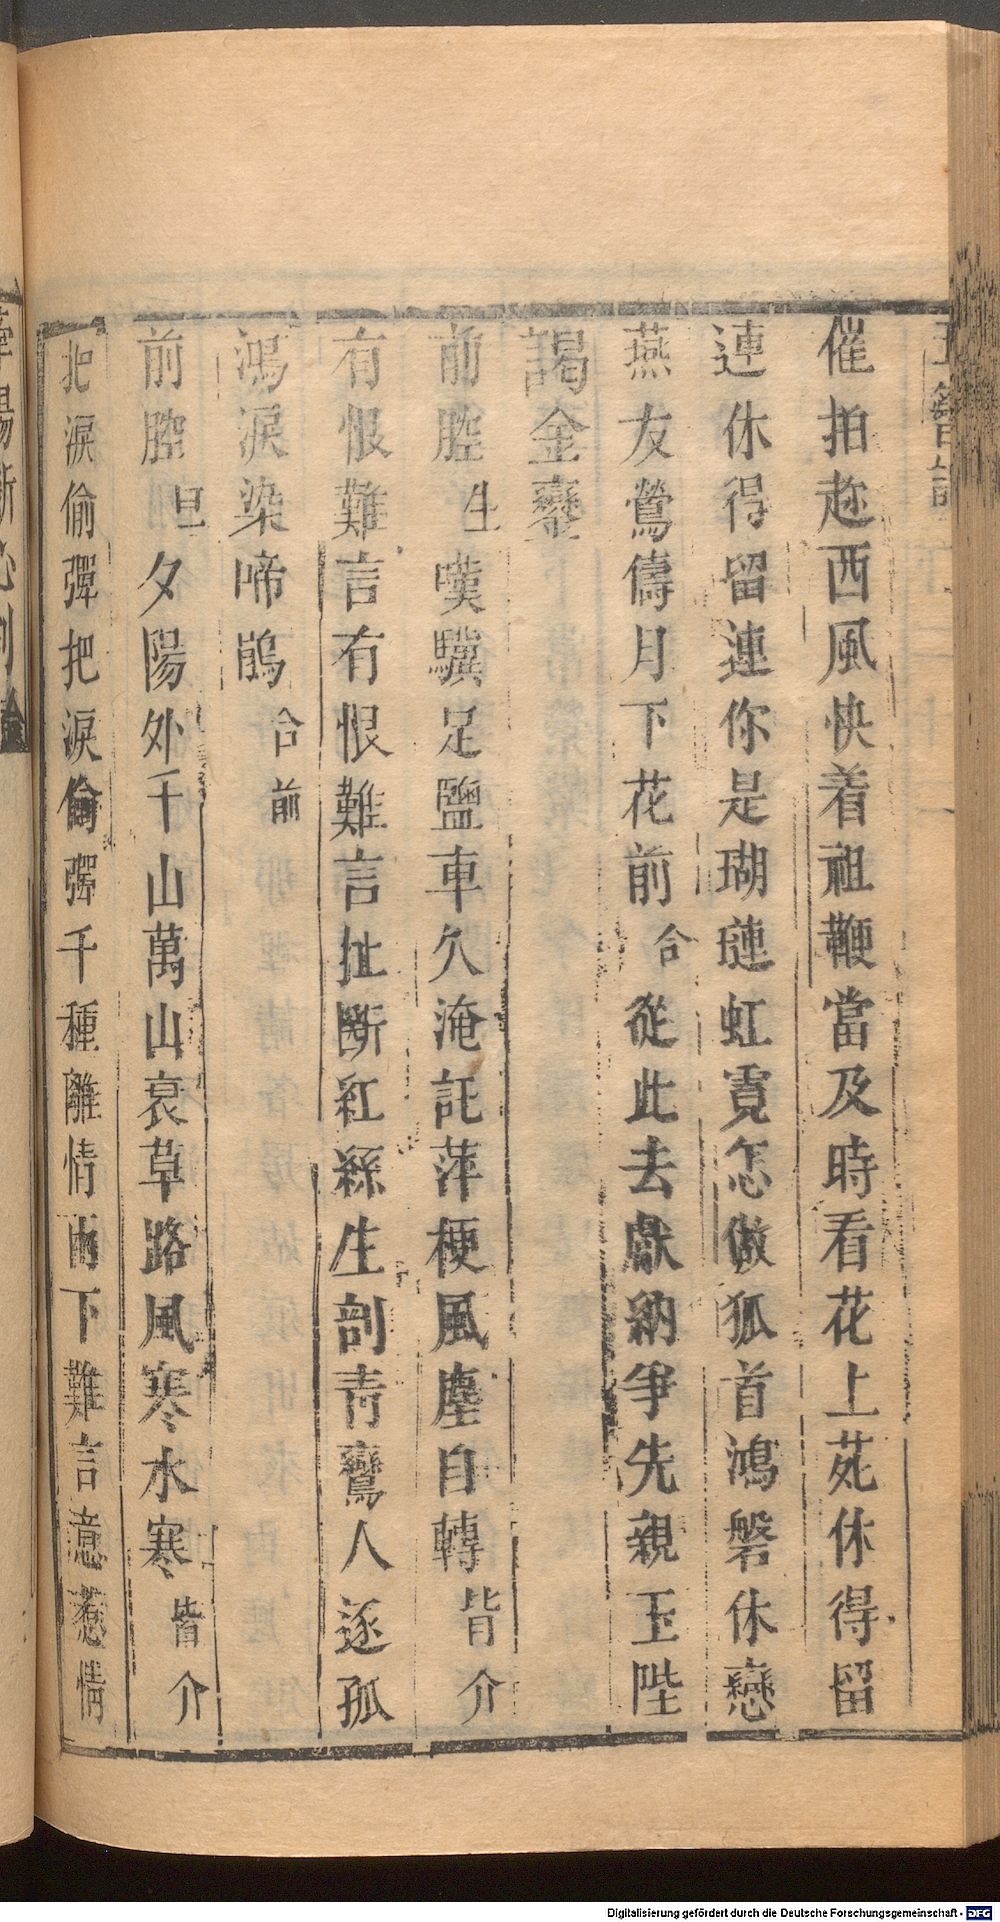 催拍趂西風快着祖鞭當及時看花上苑休得留
連休得留連你是瑚璉虹霓怎傚狐首鴻磐休戀
燕友鶯儔月下花前合從此去獻納爭先親玉陛
謁金鑾
前腔生嘆驥足鹽車久淹託萍梗風塵自轉背介
有恨難言有恨難言扯斷紅絲生剖青鸞人逐孤
鴻淚染啼鵑合前
前腔旦夕陽外千山萬山衰草路風寒水寒背介
把淚偷彈把淚偷彈千種離情兩下難言意惹情
Digitalisierung gefördert durch die Deutsche Forschungsgemeinschaft - DFG